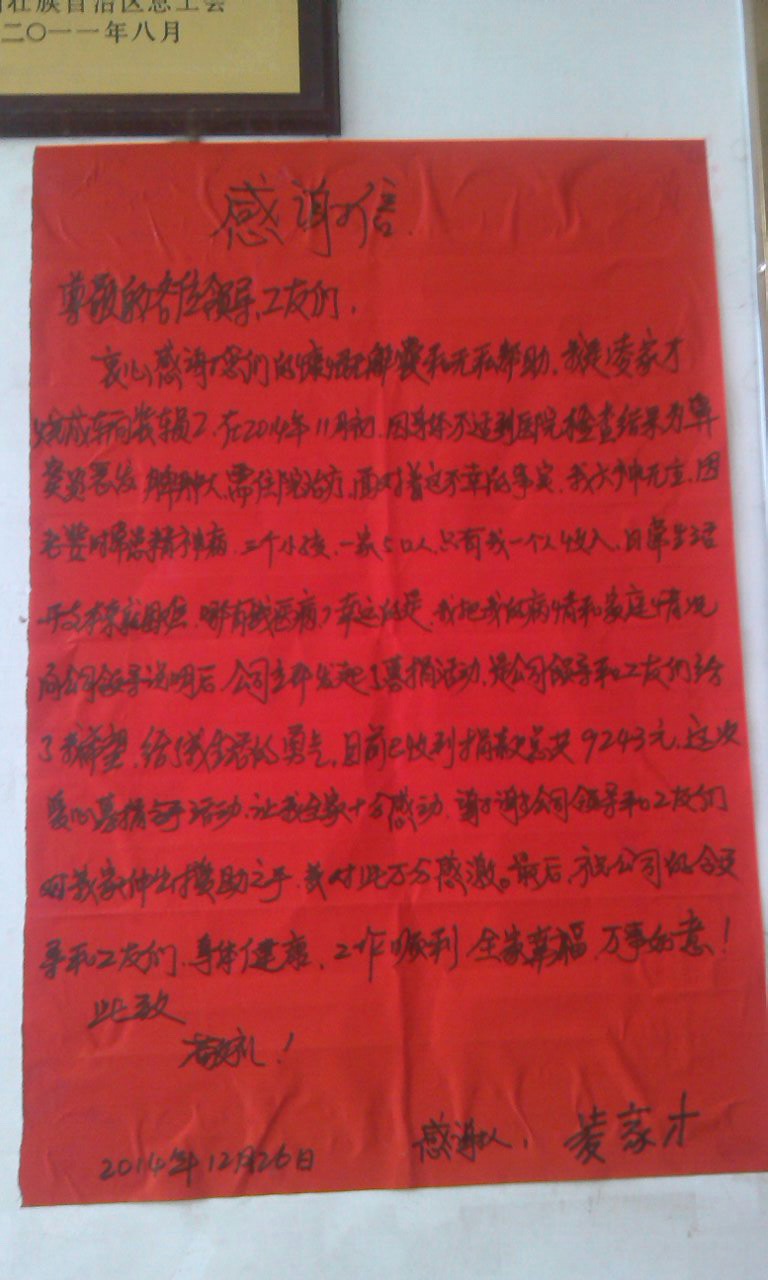 壮族自治区总工会
二〇一一年八月
感谢信
尊敬的各位领导、工友们,
衷心感谢您们的慷慨解囊和无私帮助。我是凌家才
烧成车间装辊工,在2014年11月初,因身体不适到医院检查结果为
脾肿大,需住院治疗,面对着这不幸的事实,我六神无主,因
老婆时患精神病,三个小孩,一家5口人,只有我一个人收入,日常生活
开支本来就困难,哪有钱医病?幸运的是,我把我的病情和家庭情况
向公司领导说明后,公司立即发起了募捐活动,是公司领导和工友们给
了我希望,给了我生活的勇气,目前已收到捐款总共9243元,这次
爱心募捐活动,让我全家十分感动,谢谢公司领导和工友们
对我家伸出援助之手,我对此万分感激。最后,祝公司的全
导和工友们,身体健康,工作顺利,全家幸福,万事如意!
此致
敬礼!
感谢人:凌家才
2014年12月26日